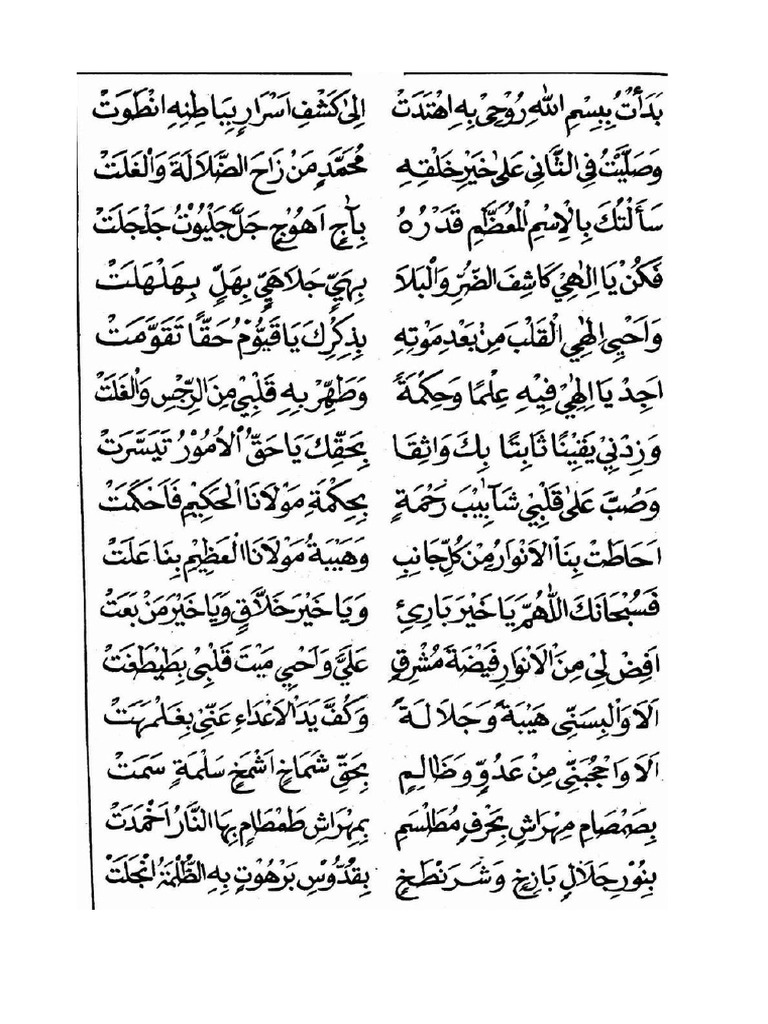 بَدَأْتُ بِبِسْمِ اللّٰهِ رُوْحِىْ بِهِ اهْتَدَتْ اِلىٰ كَشْفِ اَسْرَارٍ بِبَاطِنِهِ انْطَوَتْ
وَصَلَّيْتُ فِى الثَّانِى عَلىٰ خَيْرِ خَلْقِهِ مُحَمَّدٍ مَنْ زَاحَ الضَّلَالَةَ وَالْغَلَتْ
سَأَلْتُكَ بِالْاِسْمِ الْمُعَظَّمِ قَدْرُهُ بِآجٍ اَهُوْجٍ جَلَّ جَلْيُوْتُ جَلْجَلَتْ
فَكُنْ يَا اِلٰهِيْ كَاشِفَ الضُّرِّ وَالْبَلَا بِهَيٍّ جَلَا هَيٍّ بِهَلٍّ بِهَلْهَلَتْ
وَاَحْيِىْ اِلٰهِي الْقَلْبَ مِنْ بَعْدِ مَوْتِهِ بِذِكْرِكَ يَا قَيُّوْمُ حَقًّا تَقَوَّمَتْ
اَجِدْ يَا اِلٰهِيْ فِيْهِ عِلْمًا وَحِكْمَةً وَطَهِّرْ بِهِ قَلْبِيْ مِنَ الرِّجْسِ وَالْغَلَتْ
وَزِدْنِيْ يَقِيْنًا ثَابِتًا بِكَ وَاثِقَا بِحَقِّكَ يَا حَقُّ الْاُمُوْرُ تَيَسَّرَتْ
وَصُبَّ عَلىٰ قَلْبِيْ شَآبِيْبَ رَحْمَةٍ بِحِكْمَةِ مَوْلَانَا الْحَكِيْمِ فَاَحْكَمَتْ
اَحَاطَتْ بِنَا الْاَنْوَارُ مِنْ كُلِّ جَانِبٍ وَهَيْبَةُ مَوْلَانَا الْعَظِيْمِ بِنَا عَلَتْ
فَسُبْحَانَكَ اللّٰهُمَّ يَا خَيْرَ بَارِئٍ وَيَا خَيْرَ خَلَّاقٍ وَيَا خَيْرَ مَنْ بَعَتْ
اَفِضْ لِىْ مِنَ الْاَنْوَارِ فَيْضَةَ مُشْرِقٍ عَلَيَّ وَاَحْيِيْ مَيْتَ قَلْبِىْ بِطَيْطَغَتْ
اَلَا وَالْبِسَنِّى هَيْبَةً وَجَلَالَةً وَكُفَّ يَدَ الْاَعْدَاءِ عَنِّى بِغَلْمَهَتْ
اَلَا وَاحْجُبَنِّى مِنْ عَدُوٍّ وَظَالِمٍ بِحَقِّ شَمَاخٍ اَشْمَخٍ سَلْمَةٍ سَمَتْ
بِصَمْصَامٍ مِهْرَاشٍ بِحَرْفٍ مُطَلْسَمٍ بِمِهْرَاشٍ طَمْطَامٍ بِهَا النَّارُ اُخْمِدَتْ
بِنُوْرِ جَلَالٍ بَازِخٍ وَشَرَنْطَخٍ بِقُدُّوْسِ بَرْهُوْتٍ بِهِ الظُّلْمَةُ انْجَلَتْ